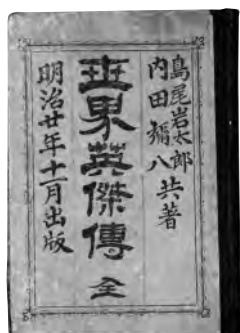 島尾岩太郎
内田彌八
共著
世界英傑傳 全
明治廿年十一月出版